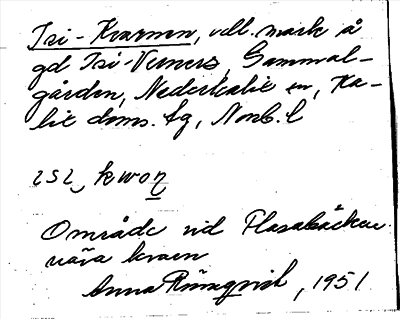 Isi-Kvarnen, vdl. mark å
gd Isi-Verners, Gammal-
gården, Nederkalix sn, Ka-
lix doms. tg, Norrb. l
ısı, kwoņ
Område vid Flasabäcken
nära kvarn
Anna Römqvist, 1951